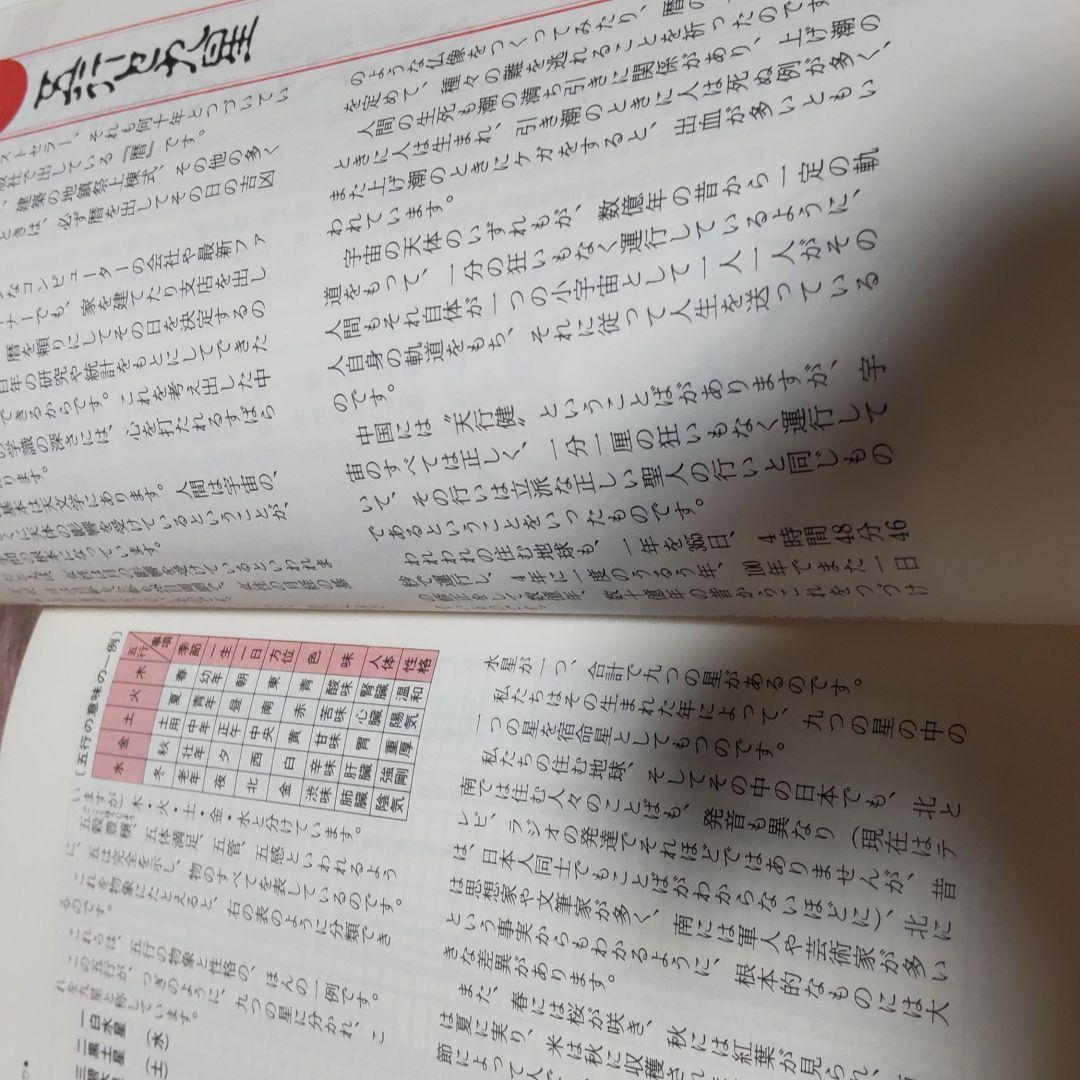 五行と九星
ストセラー、それも何十年とつづいてい
版社で出している『暦』です。
、建築の地鎮祭上棟式、その他の多く
ときは、必ず暦を出してその日の吉凶
なコンピューターの会社や最新ファ
ナーでも、家を建てたり支店を出し
暦を頼りにしてその日を決定するの
百年の研究や統計をもとにしてできた
できるからです。これを考え出した中
の学識の深さには、心を打たれるすばら
ります。
基本は天文学にあります。人間は宇宙の、
に天体の影響を受けているということが、
になっています。
のような仏像をつくってみたり、暦の
を定めて、種々の難を逃れることを祈ったのです
人間の生死も潮の満ち引きに関係があり、上げ潮の
ときに人は生まれ、引き潮のときに人は死ぬ例が多く、
また上げ潮のときにケガをすると、出血が多いともい
われています。
宇宙の天体のいずれもが、数億年の昔から一定の軌
道をもって、一分の狂いもなく運行しているように、
人間もそれ自体が一つの小宇宙として一人一人がその
人自身の軌道をもち、それに従って人生を送っている
のです。
中国には〝天行健〟ということばがありますが、宇
宙のすべては正しく、一分一厘の狂いもなく運行して
いて、その行いは立派な正しい聖人の行いと同じもの
であるということをいったものです。
われわれの住む地球も、一年を365日、4時間48分46
秒で運行し、4年に一度のうるう年、100年でまた一日
の修正をして数億年、数十億年の昔からこれをつづけ
〔五行の意味の一例〕
五行 事項 季節 一生 一日 方位 色 味 人体 性格
木 春 幼年 朝 東 青 酸味 腎臓 温和
火 夏 青年 昼 南 赤 苦味 心臓 陽気
土 土用 中年 正午 中央 黄 甘味 胃 重厚
金 秋 壮年 夕 西 白 辛味 肝臓 強剛
水 冬 老年 夜 北 金 渋味 肺臓 陰気
いますが、木・火・土・金・水と分けています。
五穀豊穣、五体満足、五管、五感といわれるよう
に、五は完全を示し、物のすべてを表しているのです。
これを物象にたとえると、右の表のように分類でき
るのです。
これらは、五行の物象と性格の、ほんの一例です。
この五行が、つぎのように、九つの星に分かれ、こ
れを九星と称しています。
一白水星 (水)
二黒土星 (土)
水星が一つ、合計で九つの星があるのです。
私たちはその生まれた年によって、九つの星の中の
一つの星を宿命星としてもつのです。
私たちの住む地球、そしてその中の日本でも、北と
南では住む人々のことばも、発音も異なり(現在はテ
レビ、ラジオの発達でそれほどではありませんが、昔
は、日本人同士でもことばがわからないほどに)、北に
は思想家や文筆家が多く、南には軍人や芸術家が多い
という事実からもわかるように、根本的なものには大
きな差異があります。
また、春には桜が咲き、秋には紅葉が見られ、
は夏に実り、米は秋に収穫さ
節によって人で